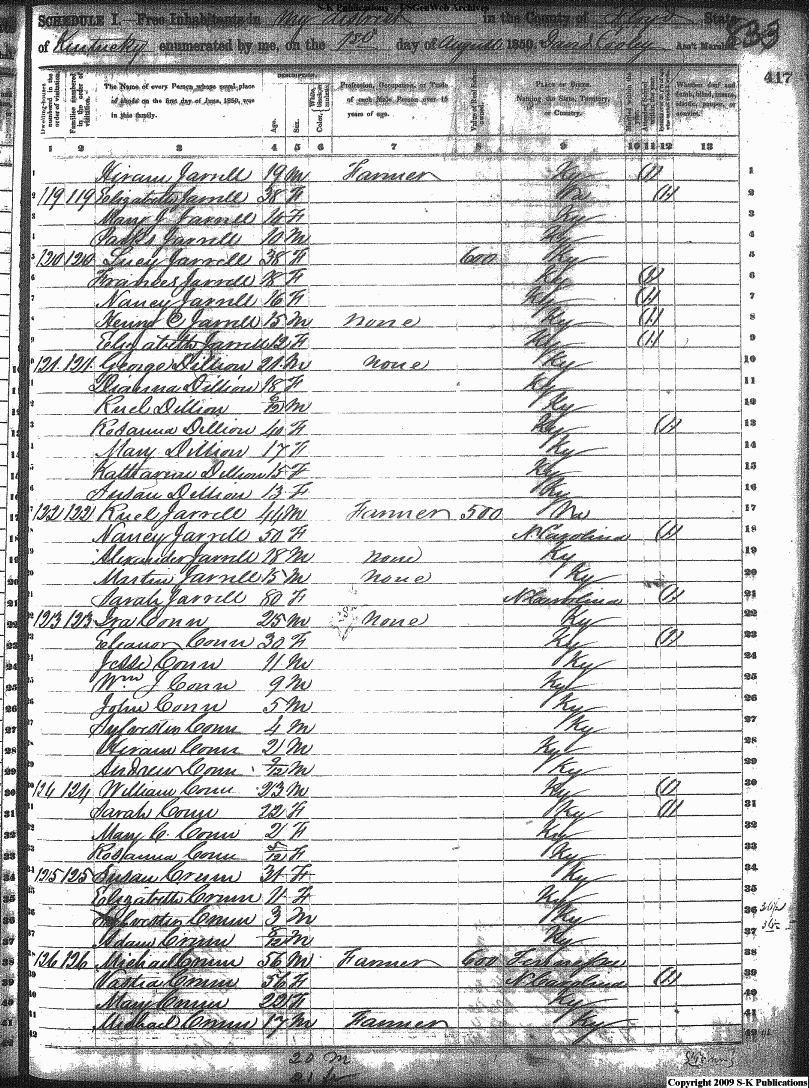 S-K Publications - USGenWeb Archives
SCHEDULE I.—Free Inhabitants in My district in the County of Floyd State
of Kentucky enumerated by me, on the 1st day of August 1850. David Cooley Ass't Marshal
833
417
DESCRIPTION.
Dwelling-houses numbered in the order of visitation.
Families numbered in the order of visitation.
The Name of every Person whose usual place of abode on the first day of June, 1850, was in this family.
Age.
Sex.
Profession, Occupation, or Trade of each Male Person over 15 years of age.
Value of Real Estate owned.
PLACE OF BIRTH. Naming the State, Territory, or Country.
Whether deaf and dumb, blind, insane, idiotic, pauper, or convict.
1 2 3 4 5 6 7 8 9 10 11 12 13
1 Hiram Jarrell 19 M Farmer Ky (1) 1
2 119 119 Elizabeth Jarrell 38 F Va (1) 2
3 Mary J Jarrell 16 F Ky 3
4 Jarrell 10 M Ky 4
5 120 120 Lucy Jarrell 38 F 600 Ky 5
Frances Jarrell 18 F Ky (1) 6
Nancy Jarrell 16 F Ky (1) 7
Henry C Jarrell 15 M none Ky (1) 8
Elizabeth Jarrell 12 F Ky (1) 9
121 121 George Dillion 21 M none Ky 10
Dillion 18 F Ky 11
Ruel Dillion /12 M Ky 12
Rosanna Dillion 40 F Ky (1) 13
Mary Dillion 17 F Ky 14
Katharine Dillion 15 F Ky 15
Susan Dillion 13 F Ky 16
122 122 Ruel Jarrell 44 M Farmer 500 Va 17
Nancy Jarrell 50 F N Carolina (1) 18
Alexander Jarrell 18 M none Ky 19
Martin Jarrell 15 M none Ky 20
Sarah Jarrell 80 F N Carolina (1) 21
123 123 Ira Conn 25 M none Ky 22
Eleanor Conn 30 F Ky (1) 23
Jesse Conn 11 M Ky 24
Wm J Conn 9 M Ky 25
John Conn 5 M Ky 26
Sylvestin Conn 4 M Ky 27
Hiram Conn 2 M Ky 28
Andrew Conn /12 M Ky 29
124 124 William Conn 23 M Ky (1) 30
Sarah Conn 22 F Ky (1) 31
Mary C. Conn 2 F Ky 32
Rosanna Conn 5/12 F Ky 33
125 125 Susan Crum 31 F Ky 34
Elizabeth Crum 11 F Ky 35
Sylvestin Crum 3 M Ky 36
Adam Crum 8/12 M Ky 37
126 126 Michael Crum 56 M Farmer 600 38
Crum 56 F N Carolina (1) 39
Mary Crum 22 F Ky 40
Michael Crum 17 M Farmer Ky 41
42
20 M
21 F
Copyright 2009 S-K Publications